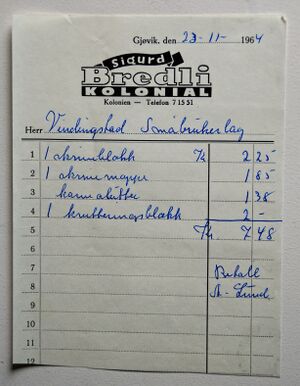 Gjøvik, den 23-11- 1964
Sigurd
Bredli
KOLONIAL
Kolonien — Telefon 7 15 51
Herr Vindingstad Småbrukerlag
1 1 skriveblokk 2 25
2 1 skrivemappe 1 85
3 1 38
4 1 kvitteringsblokk 2 -
5 7 48
6
7 Betalt
8
9
10
11
12